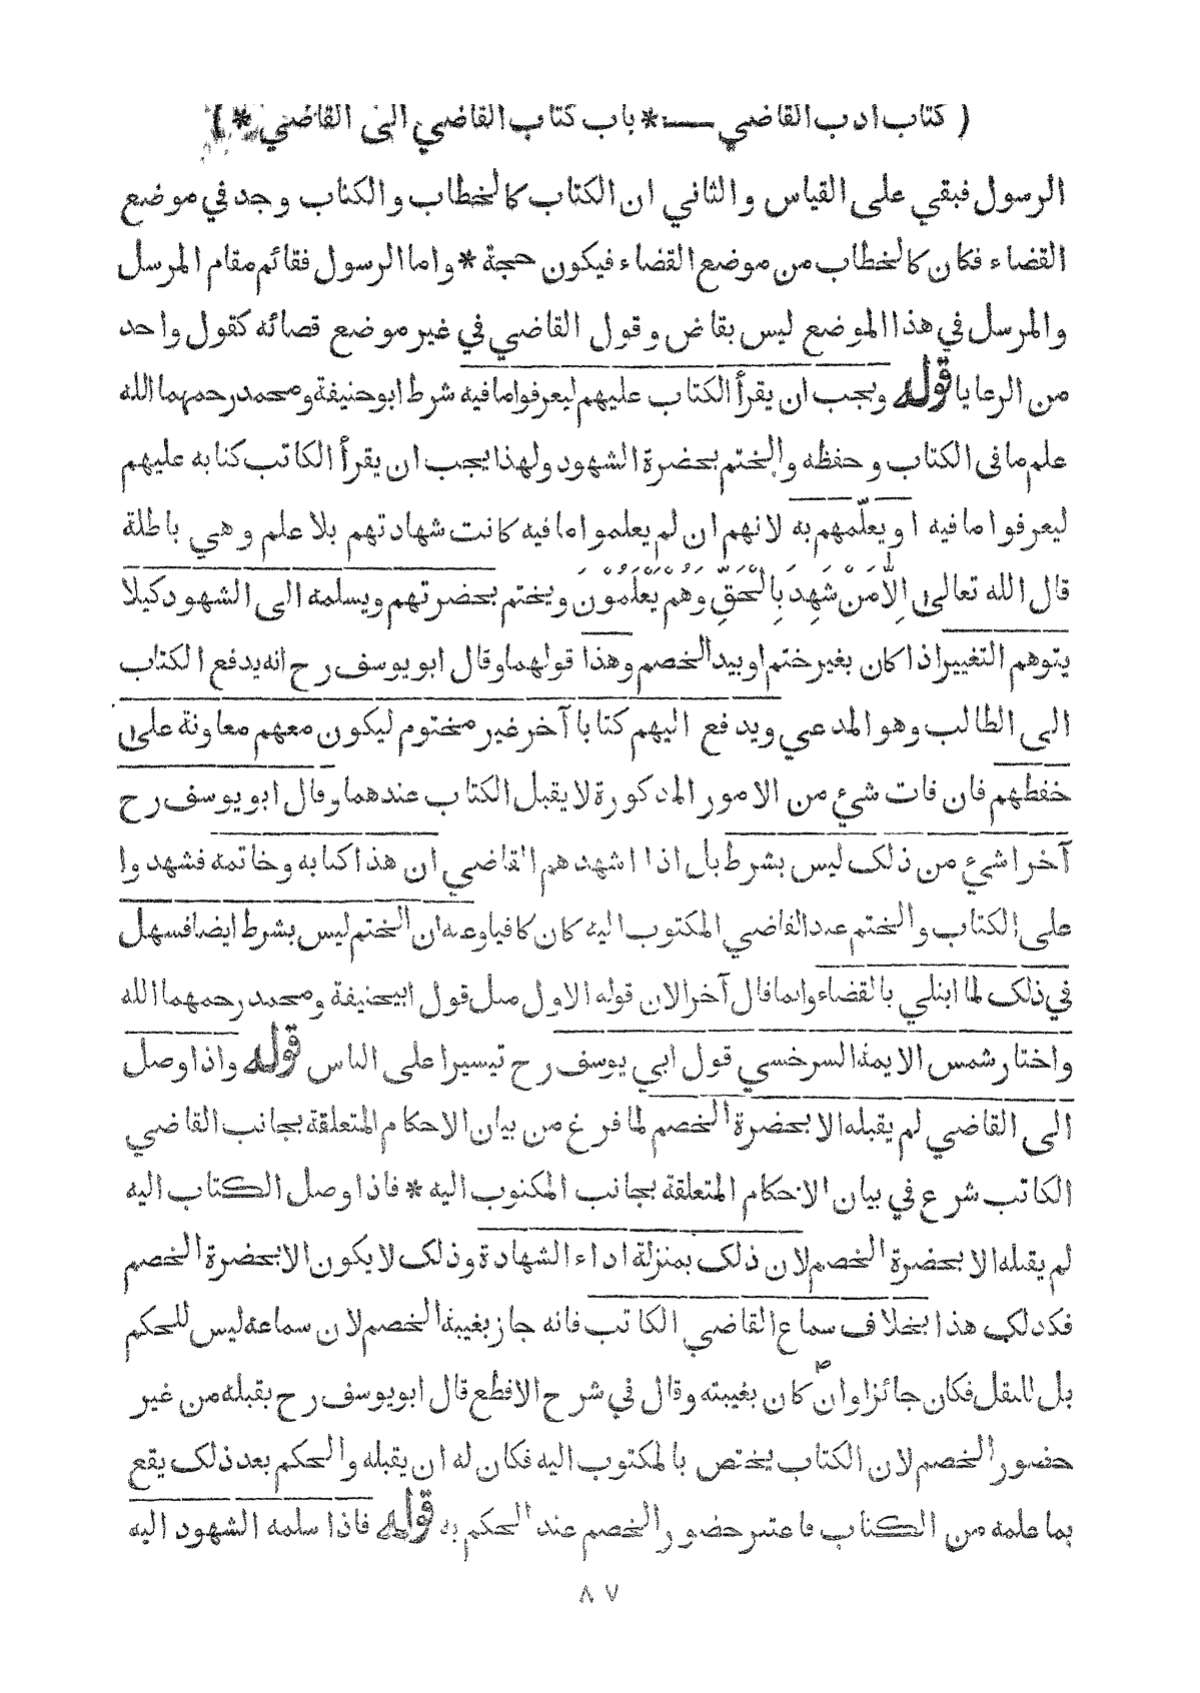 ( كتاب ادب القاضي —* باب كتاب القاضي الى القاضي * )
الرسول فبقي على القياس والثاني ان الكتاب كالخطاب والكتاب وجد في موضع
القضاء فكان كالخطاب من موضع القضاء فيكون حجة * واما الرسول فقائم مقام المرسل
والمرسل في هذا الموضع ليس بقاض وقول القاضي في غير موضع قضائه كقول واحد
من الرعايا قوله ويجب ان يقرأ الكتاب عليهم ليعرفوا ما فيه شرط ابوحنيفة ومحمد رحمهما الله
علم ما فى الكتاب وحفظه والختم بحضرة الشهود ولهذا يجب ان يقرأ الكاتب كتابه عليهم
ليعرفوا ما فيه او يعلّمهم به لانهم ان لم يعلموا ما فيه كانت شهادتهم بلا علم وهي باطلة
قال الله تعالى اِلَّا مَنْ شَهِدَ بِالْحَقِّ وَهُمْ يَعْلَمُوْنَ ويختم بحضرتهم ويسلمه الى الشهود كيلا
يتوهم التغيير اذا كان بغير ختم او بيد الخصم وهذا قولهما وقال ابو يوسف رح انه يدفع الكتاب
الى الطالب وهو المدعي ويدفع اليهم كتابا آخر غير مختوم ليكون معهم معاونة على
حفظهم فان فات شيء من الامور المذكورة لا يقبل الكتاب عندهما وقال ابو يوسف رح
آخرا شيء من ذلك ليس بشرط بل اذا اشهدهم القاضي ان هذا كتابه وخاتمه فشهدوا
على الكتاب والختم عند القاضي المكتوب اليه كان كافيا وعنه ان الختم ليس بشرط ايضا فسهل
في ذلك لما ابتلي بالقضاء وانما قال آخرا لان قوله الاول مثل قول ابيحنيفة ومحمد رحمهما الله
واختار شمس الايمة السرخسي قول ابي يوسف رح تيسيرا على الناس قوله واذا وصل
الى القاضي لم يقبله الا بحضرة الخصم لما فرغ من بيان الاحكام المتعلقة بجانب القاضي
الكاتب شرع في بيان الاحكام المتعلقة بجانب المكتوب اليه * فاذا وصل الكتاب اليه
لم يقبله الا بحضرة الخصم لان ذلك بمنزلة اداء الشهادة وذلك لا يكون الا بحضرة الخصم
فكذلك هذا بخلاف سماع القاضي الكاتب فانه جاز بغيبة الخصم لان سماعه ليس للحكم
بل للنقل فكان جائزا وان كان بغيبته وقال في شرح الاقطع قال ابو يوسف رح يقبله من غير
حضور الخصم لان الكتاب يختص بالمكتوب اليه فكان له ان يقبله والحكم بعد ذلك يقع
بما علمه من الكتاب فاعتبر حضور الخصم عند الحكم به قوله فاذا سلمه الشهود اليه
٨٧